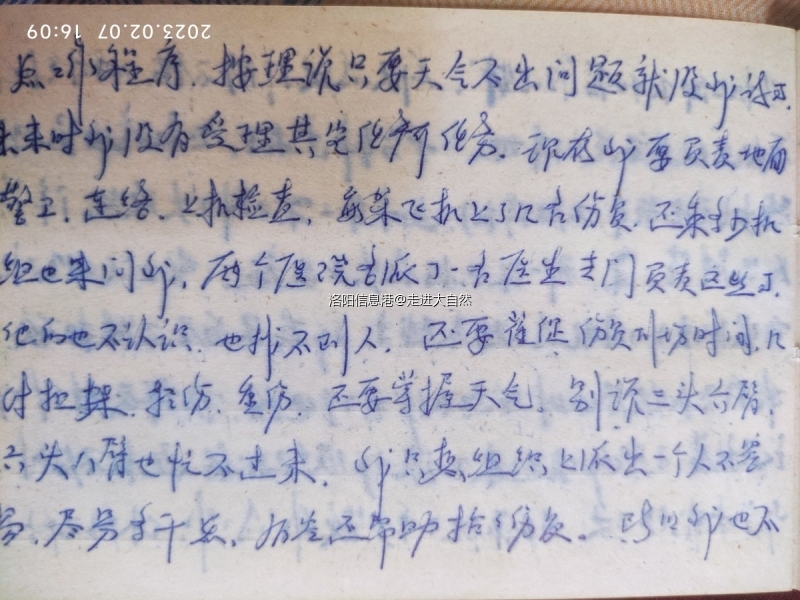 2023.02.07 16:09
点工作程序，按理说只要天气不出问题就没我讲了，
未来时我没有受理其它任何任务，现在我要负责地面
警卫，连络，上机检查，每架飞机上了几名伤员，还来多少机
组也来问我，两个医院各派了一名医生专门负责这些事，
他们也不认识，也找不到人，还要催促伤员到场时间，几
付担架，轻伤，重伤，还要掌握天气，别说三头六臂，
六头八臂也忙不过来，我只想组织上派出一个人不管
多，尽另多干点，有空还帮助抬伤员。所以我也不
洛阳信息港@走进大自然